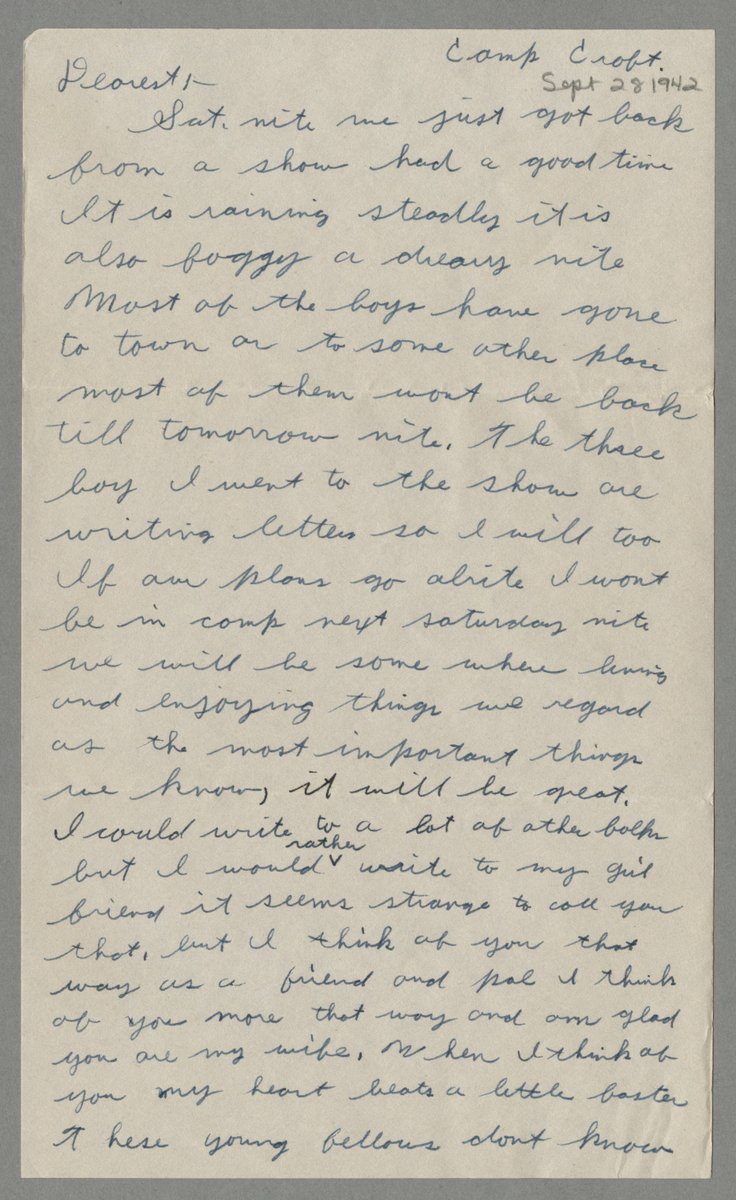 Camp Croft.
Sept 28 1942
Dearest,—
Sat. nite we just got back
from a show had a good time
It is raining steadly it is
also foggy a dreary nite
Most of the boys have gone
to town or to some other place
most of them wont be back
till tomorrow nite. The three
boy I went to the show are
writing letters so I will too
If our plans go alrite I wont
be in camp next saturday nite
we will be some where living
and enjoying things we regard
as the most important things
we know, it will be great.
I could write to a lot of other folks
but I would rather write to my girl
friend it seems strange to call you
that, but I think of you that
way as a friend and pal I think
of you more that way and am glad
you are my wife. When I think of
you my heart beats a little faster
These young fellows dont know